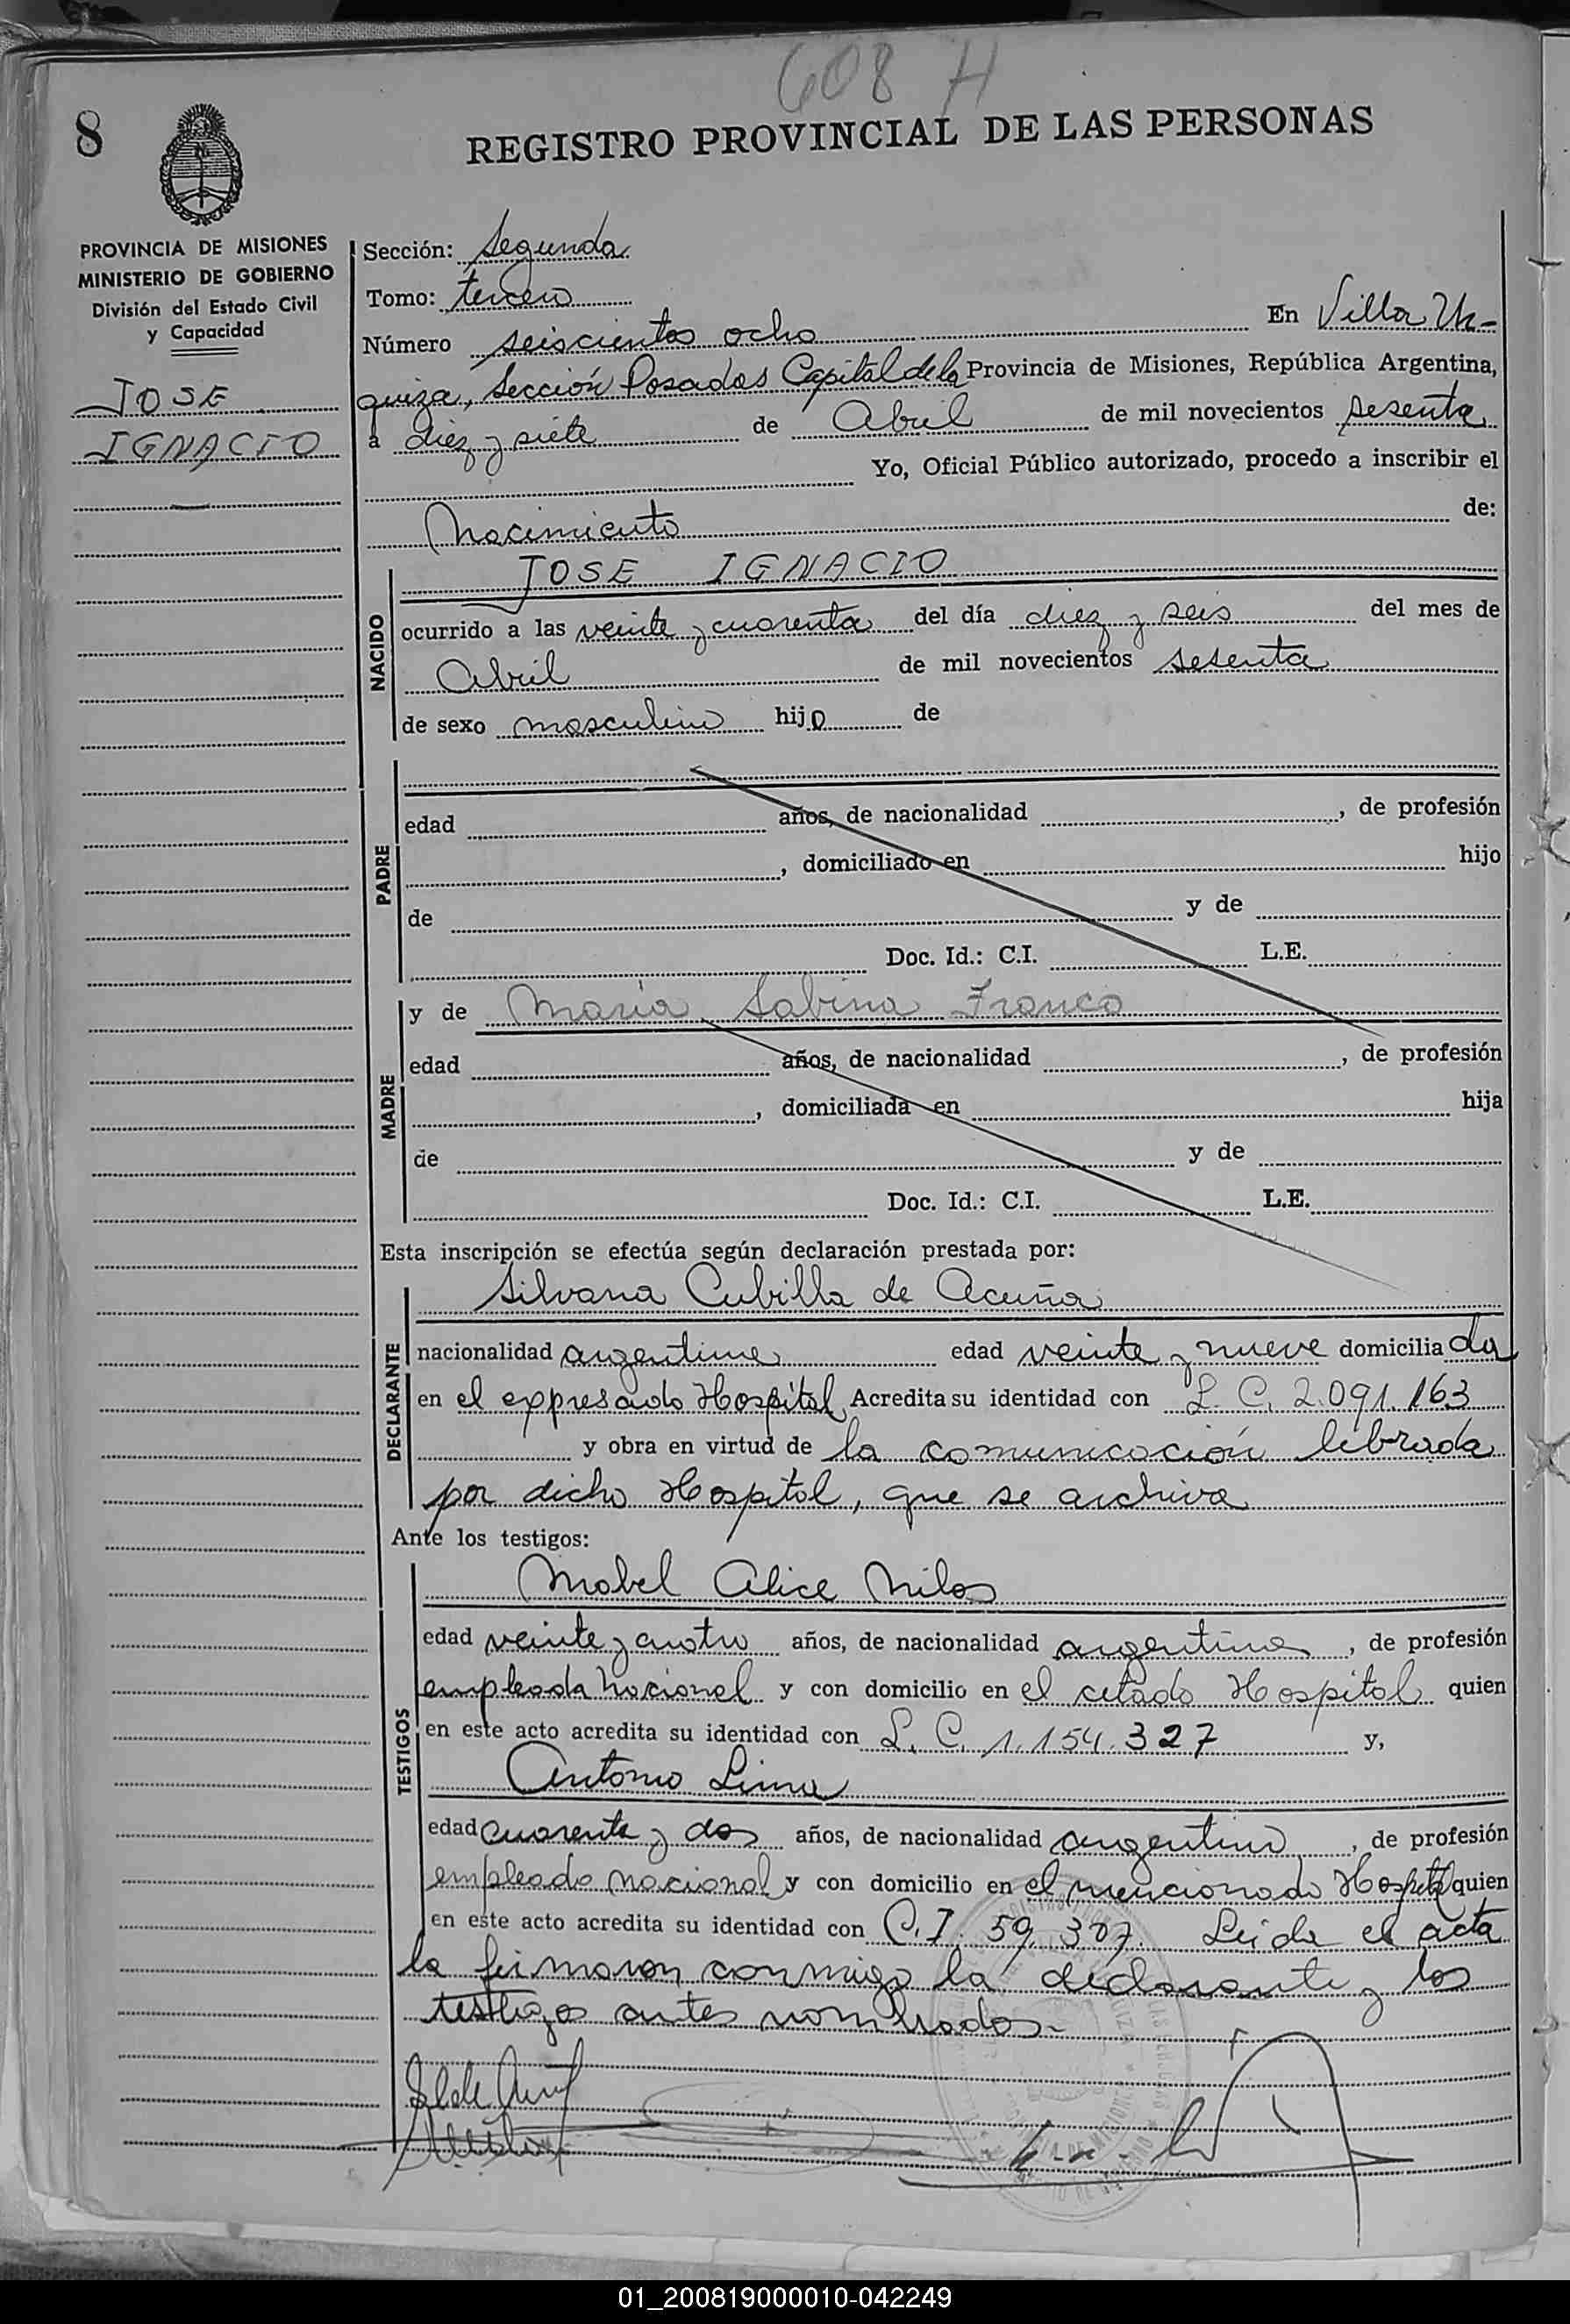 608 H
8
REGISTRO PROVINCIAL DE LAS PERSONAS
PROVINCIA DE MISIONES
MINISTERIO DE GOBIERNO
División del Estado Civil
y Capacidad
JOSE
IGNACIO
Sección: Segunda
Tomo: tercero
Número seiscientos ocho En Villa Ur-
quiza, Sección Posadas Capital de la Provincia de Misiones, República Argentina,
a diez y siete de Abril de mil novecientos sesenta
Yo, Oficial Público autorizado, procedo a inscribir el
Nacimiento de:
NACIDO
JOSE IGNACIO
ocurrido a las veinte y cuarenta del día diez y seis del mes de
Abril de mil novecientos sesenta
de sexo masculino hijo de
PADRE
edad años, de nacionalidad , de profesión
, domiciliado en hijo
de y de
Doc. Id.: C.I. L.E.
MADRE
y de María Sabina Franco
edad años, de nacionalidad , de profesión
, domiciliada en hija
de y de
Doc. Id.: C.I. L.E.
Esta inscripción se efectúa según declaración prestada por:
DECLARANTE
Silvana Cubilla de Acuña
nacionalidad argentina edad veinte y nueve domiciliada
en el expresado Hospital Acredita su identidad con L. C. 2.091.163
y obra en virtud de la comunicación librada
por dicho Hospital, que se archiva
Ante los testigos:
TESTIGOS
Mabel Alice Milos
edad veinte y cuatro años, de nacionalidad argentina, de profesión
empleada nacional y con domicilio en el citado Hospital quien
en este acto acredita su identidad con L. C. 1.154.327 y,
Antonio Lima
edad cuarenta y dos años, de nacionalidad argentino, de profesión
empleado nacional y con domicilio en el mencionado Hospital quien
en este acto acredita su identidad con C.I. 59.307. Leida el acta
la firmaron conmigo la declarante y los
testigos antes nombrados.-
01_200819000010-042249